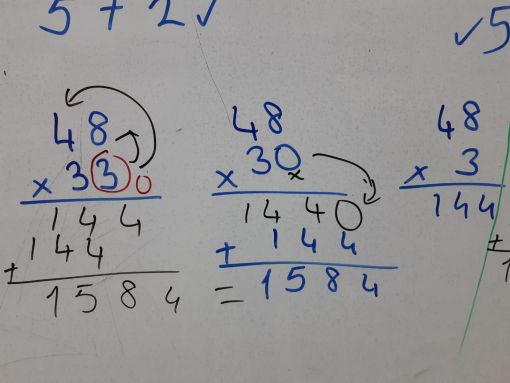 5 + 2 ✓
✓ 5
48
x 33 0
144
+ 144
1584
48
x 30
x
1440
+ 144
= 1584
48
x 3
144
+
1